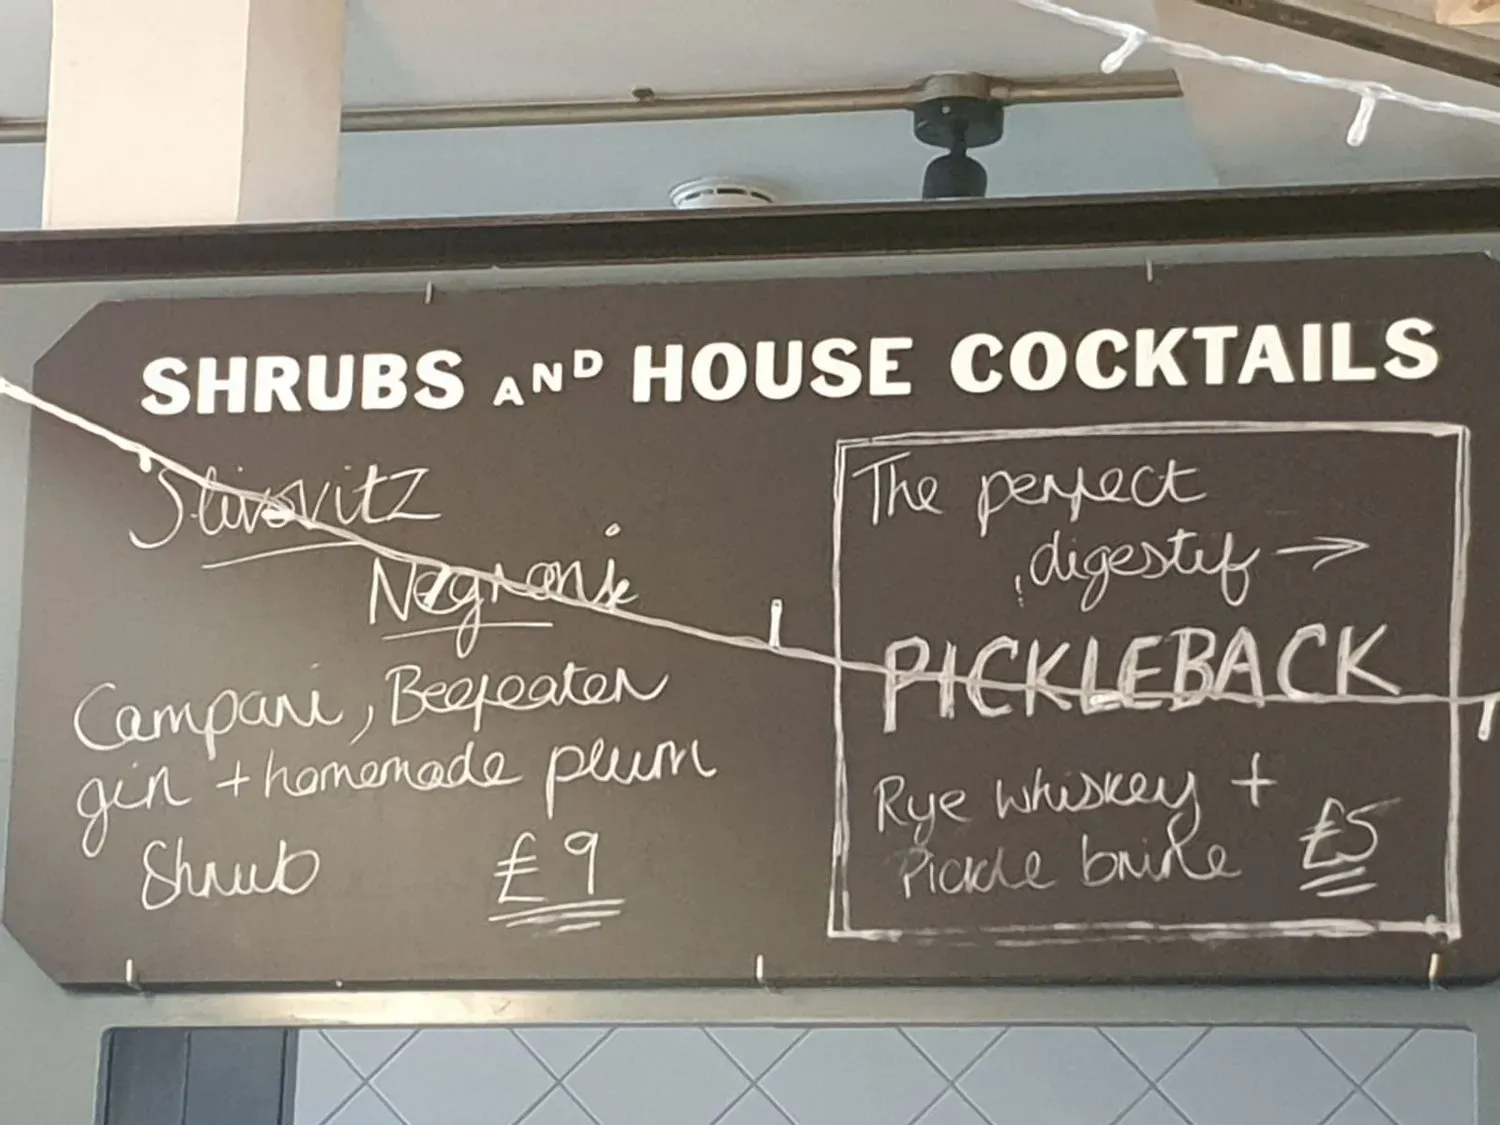 SHRUBS AND HOUSE COCKTAILS
Slivovitz
Negroni
Campari, Beefeater
gin + homemade plum
Shrub £9
The perfect
digestif →
PICKLEBACK
Rye whiskey +
Pickle brine £5